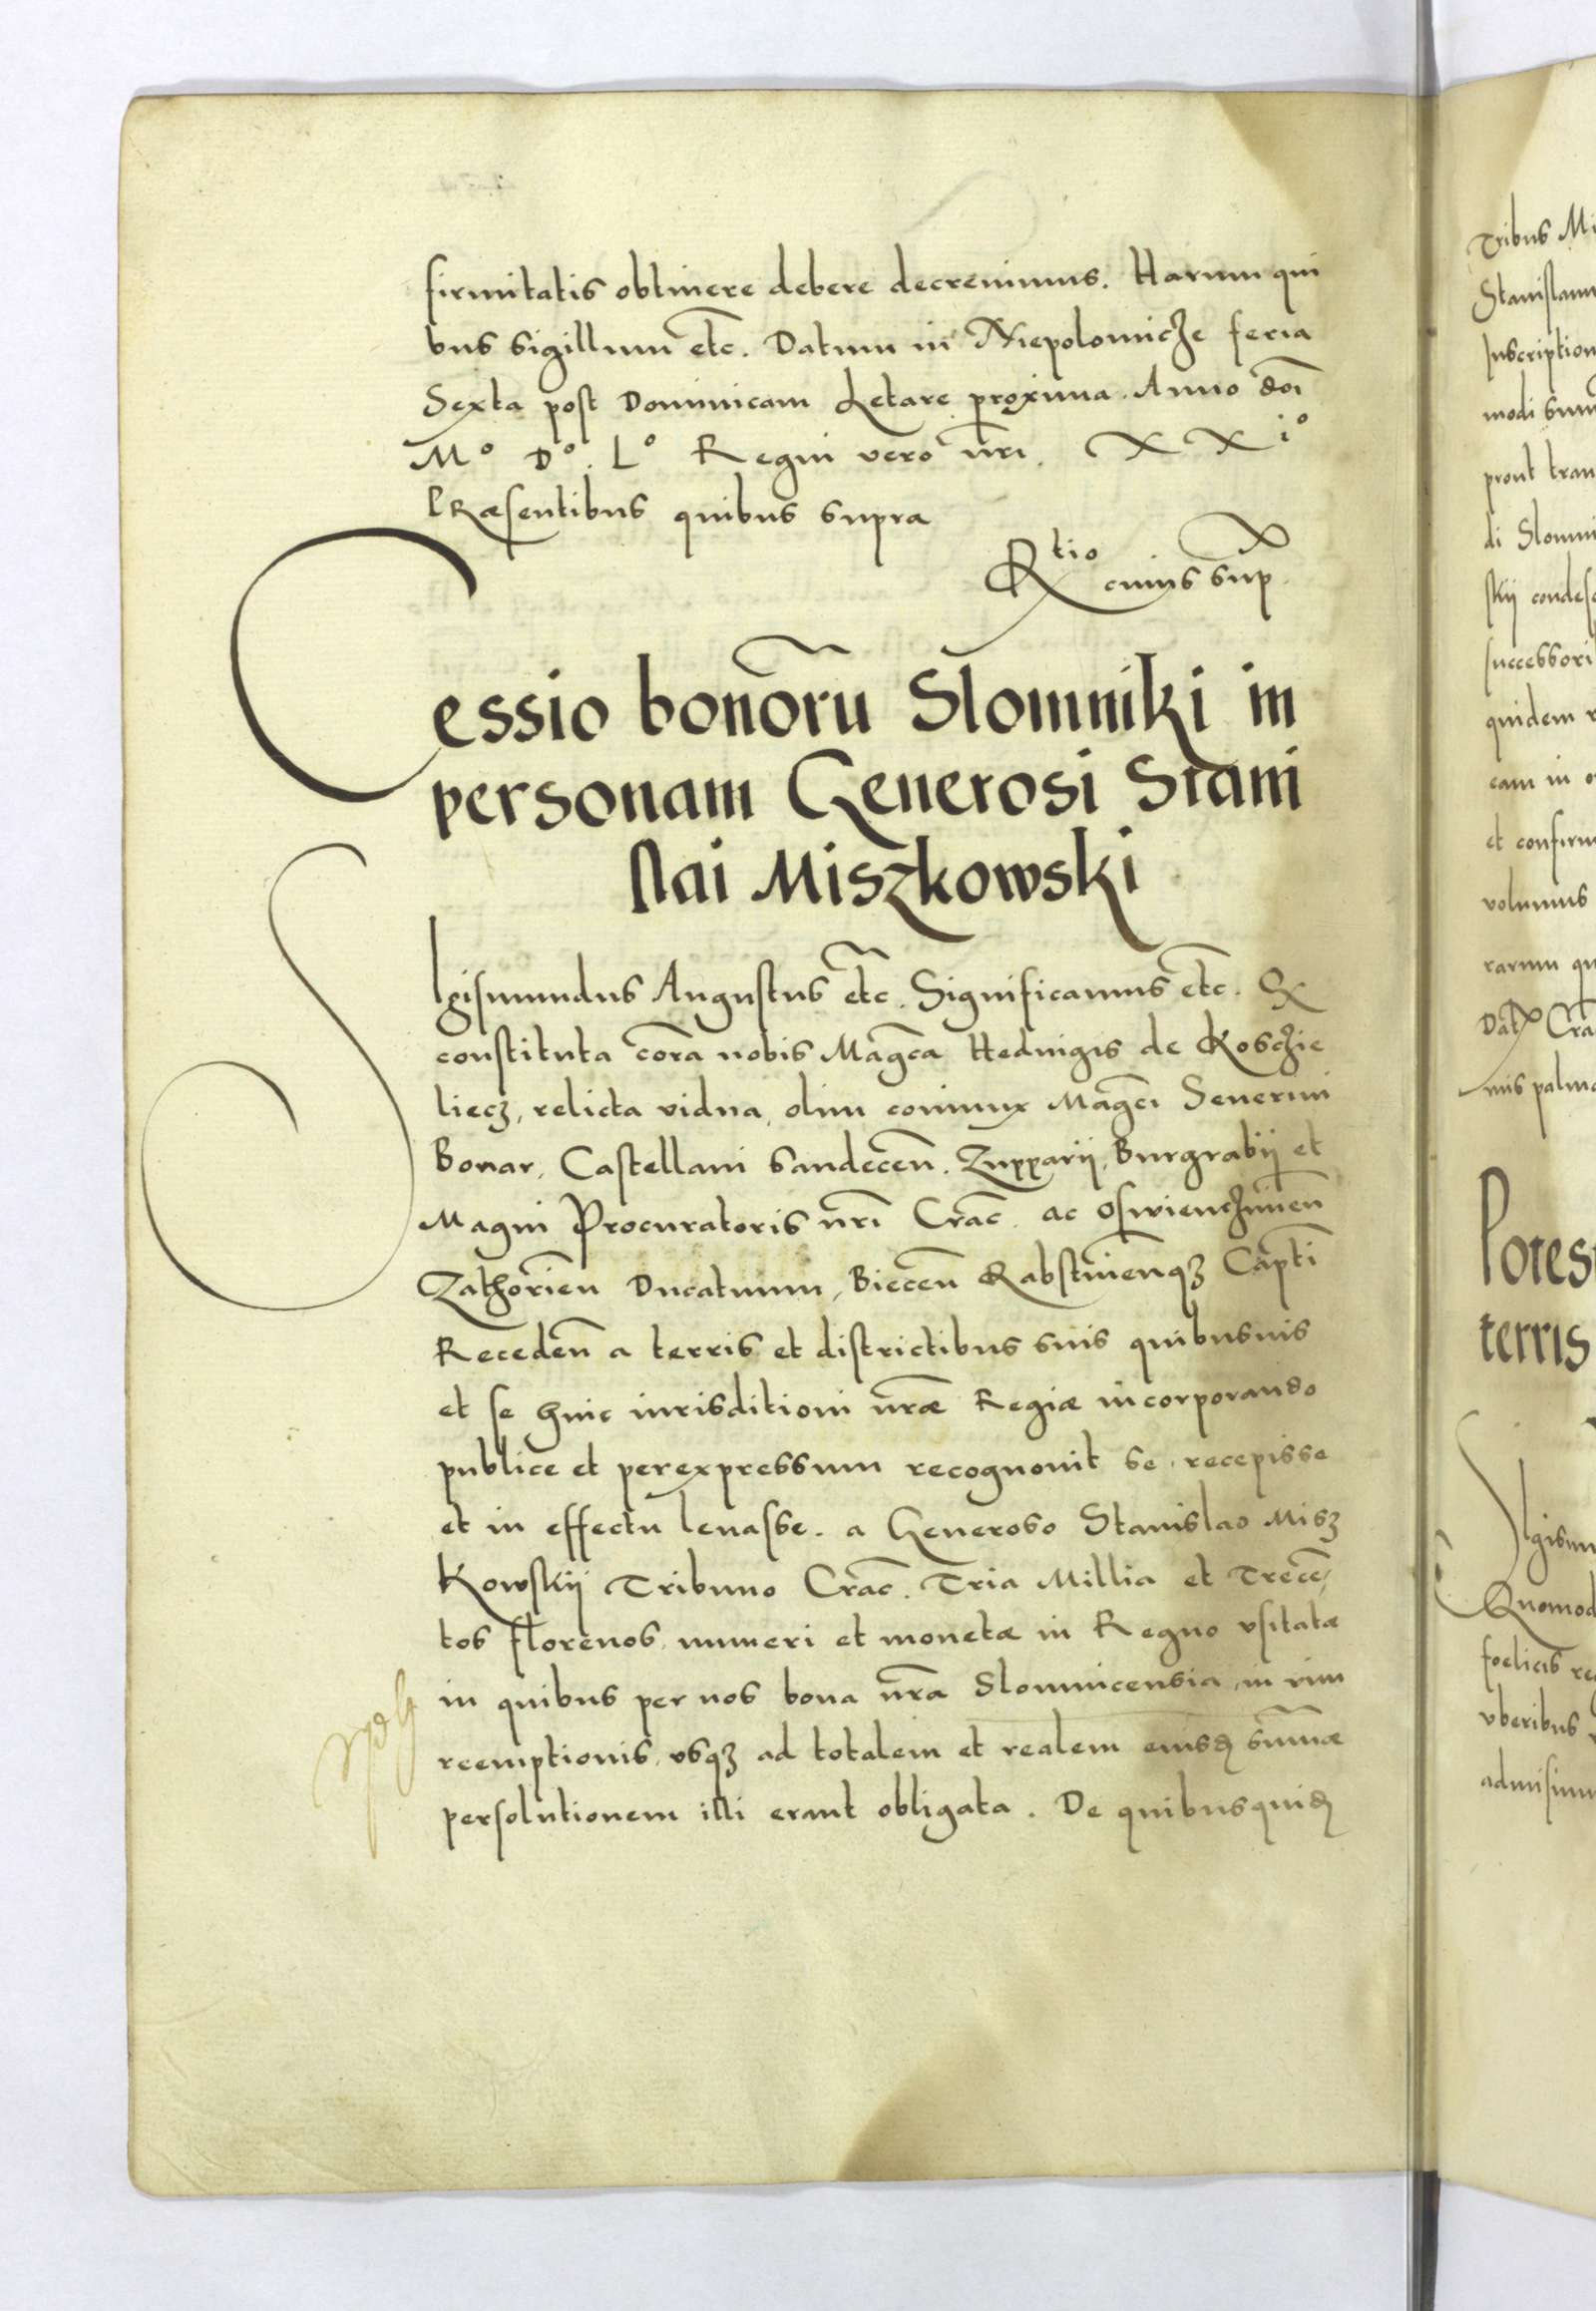 firmitatis obtinere debere decreuimus. Harum qui
bus sigillum etc. Datum in Niepolomicze feria
Sexta post Dominicam Letare proxima. Anno doi
M° D°. L° Regni vero nri. XXi°
PRæsentibus quibus supra
Rtio cuius sup.
Cessio bonoru Slomniki in
personam Generosi Stani
slai Miszkowski
Sigismundus Augustus etc. Significamus etc. Qx
constituta cora nobis Magca Heduigis de Koschie
liecz, relicta vidua, olim coniunx Magci Seuerini
Bonar, Castellani sandecen. Zupparij, Burgrabij et
Magni Procuratoris nri Crac. ac Oswienczimen
Zathorien Ducatuum, Biecen Rabstinienqz Capti
Receden a terris et districtibus suis quibusuis
et se huic iurisditioni nræ Regiæ incorporando
publice et perexpressum recognouit se recepisse
et in effectu leuasse. a Generoso Stanislao Misz
Kowskij Tribuno Crac. Tria Millia et Trece
tos florenos numeri et monetæ in Regno vsitatæ
in quibus per nos bona nra Slomnicensia, in vim
reemptionis, vsqz ad totalem et realem eiusd summæ
persolutionem illi erant obligata. De quibusquid
Tribus Mi
Stanislaum
Inscription
modi sum
prout tran
di Slomni
skij condes
successori
quidem
cam in
et confirm
volumus
rarum qu
Dat Cra
mis palma
Potes
terris
Sigism
Quomod
foelicis re
vberibus
admisim